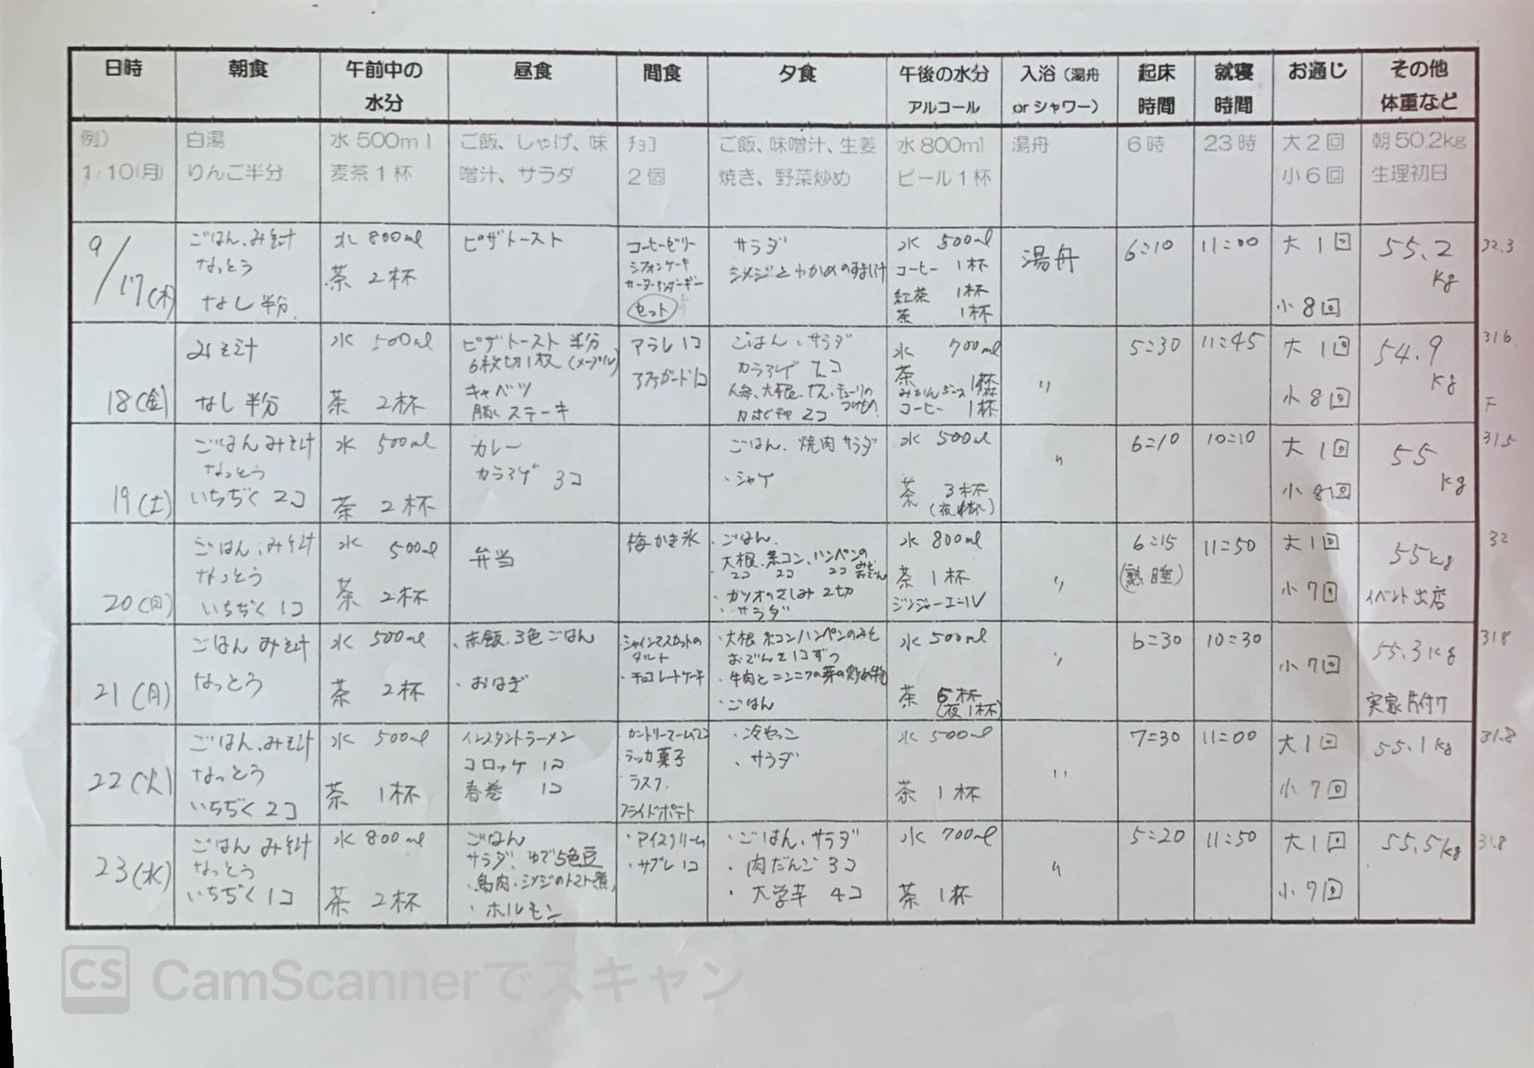 日時 朝食 午前中の水分 昼食 間食 夕食 午後の水分 アルコール 入浴（湯舟 or シャワー） 起床時間 就寝時間 お通じ その他 体重など
例） 白湯 水 500ml ご飯、しゃげ、味 チョコ ご飯、味噌汁、生姜 水 800ml 湯舟 6 時 23 時 大 2 回 朝 50.2kg
1/10(月) りんご半分 麦茶 1 杯 噌汁、サラダ 2 個 焼き、野菜炒め ビール 1 杯 小 6 回 生理初日
9/17(木)
ごはん、みそ汁
なっとう
なし 半分
水 800ml
茶 2杯
ピザトースト
コーヒーゼリー
シフォンケーキ
セット
サラダ
シメジとわかめの
水 500ml
コーヒー 1杯
紅茶 1杯
茶 1杯
湯舟
6:10
11:00
大 1回
小 8回
55.2
kg
32.3
18(金)
みそ汁
なし 半分
水 500ml
茶 2杯
ピザトースト 半分
6枚切1枚 (メープル)
キャベツ
豚ステーキ
アラレ 1コ
1コ
ごはん、サラダ
カラアゲ 2コ
人参、大根、ナス、キューリの
つけもの
2コ
水 700ml
茶 1杯
みかんジュース 1杯
コーヒー 1杯
〃
5:30
11:45
大 1回
小 8回
54.9
kg
31.6
19(土)
ごはん みそ汁
なっとう
いちぢく 2コ
水 500ml
茶 2杯
カレー
カラアゲ 3コ
ごはん、焼肉 サラダ
・シャケ
水 500ml
茶 3杯
〃
6:10
10:10
大 1回
小 8回
55
kg
31.5
20(日)
ごはん、みそ汁
なっとう
いちぢく 1コ
水 500ml
茶 2杯
弁当
梅かき氷
・ごはん、
・大根、糸コン、ハンペンの みそおでん
2コ 2コ 2コ
・カツオのさしみ 2切
・サラダ
水 800ml
茶 1杯
ジンジャーエール
〃
6:15
(熟睡)
11:50
大 1回
小 7回
55kg
イベント出店
32
21(月)
ごはん みそ汁
なっとう
水 500ml
茶 2杯
・赤飯、3色ごはん
・おはぎ
シャインマスカットの
タルト
・チョコレートケーキ
・大根 糸コン ハンペンのみそ
おでんを1コずつ
・牛肉とニンニクの芽の炒め物
・ごはん
水 500ml
茶 5杯
(夜1杯)
〃
6:30
10:30
小 7回
55.3kg
実家片付け
31.8
22(火)
ごはん、みそ汁
なっとう
いちぢく 2コ
水 500ml
茶 1杯
インスタントラーメン
コロッケ 1コ
春巻 1コ
カントリーマーム
ラッカ菓子
ラスク
フライドポテト
・冷やっこ
・サラダ
水 500ml
茶 1杯
〃
7:30
11:00
大 1回
小 7回
55.1kg
31.8
23(水)
ごはん みそ汁
なっとう
いちぢく 1コ
水 800ml
茶 2杯
ごはん
サラダ、ゆで5色豆
・鳥肉・シメジのトマト煮
・ホルモン
・アイスクリーム
・サブレ 1コ
・ごはん、サラダ
・肉だんご 3コ
・大学芋 4コ
水 700ml
茶 1杯
〃
5:20
11:50
大 1回
小 7回
55.5kg
31.8
CS CamScannerでスキャン